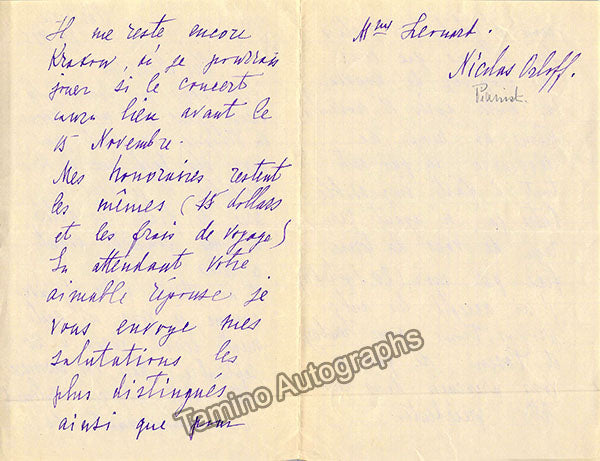 Il me reste encore
Krakow, où je pourrais
jouer si le concert
aura lieu avant le
15 Novembre.
Mes honoraires restent
les mêmes (15 dollars
et les frais de voyage)
En attendant votre
aimable réponse je
vous envoye mes
salutations les
plus distingués
ainsi que pour
Mme
Nicolas Orloff.
Pianist.
Tamino Autographs